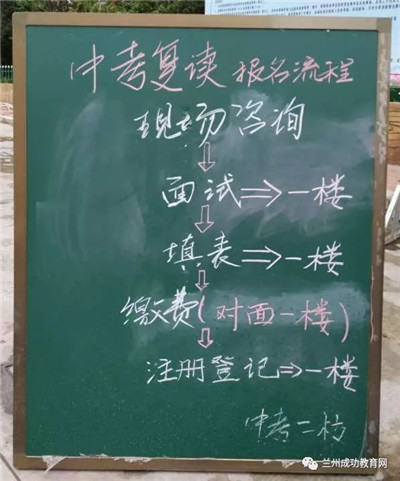 中考复读 报名流程
现场咨询
↓
面试⇒一楼
↓
填表⇒一楼
↓
缴费(对面一楼)
↓
注册登记⇒一楼
中考二坊
兰州成功教育网